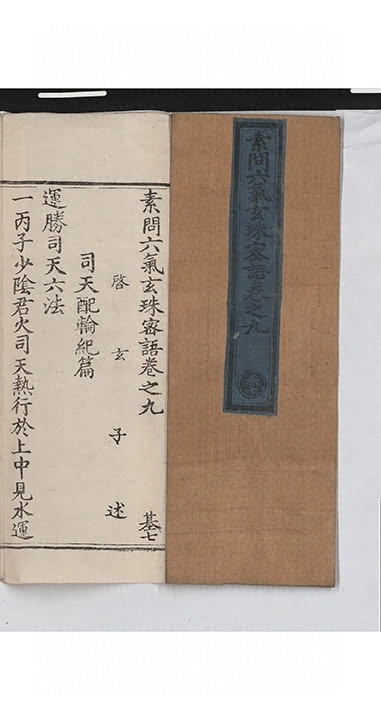 素問六氣玄珠密語卷之九
素問六氣玄珠密語卷之九 基七
啓玄子述
司天配輪紀篇
運勝司天六法
一丙子少陰君火司天熱行於上中見水運